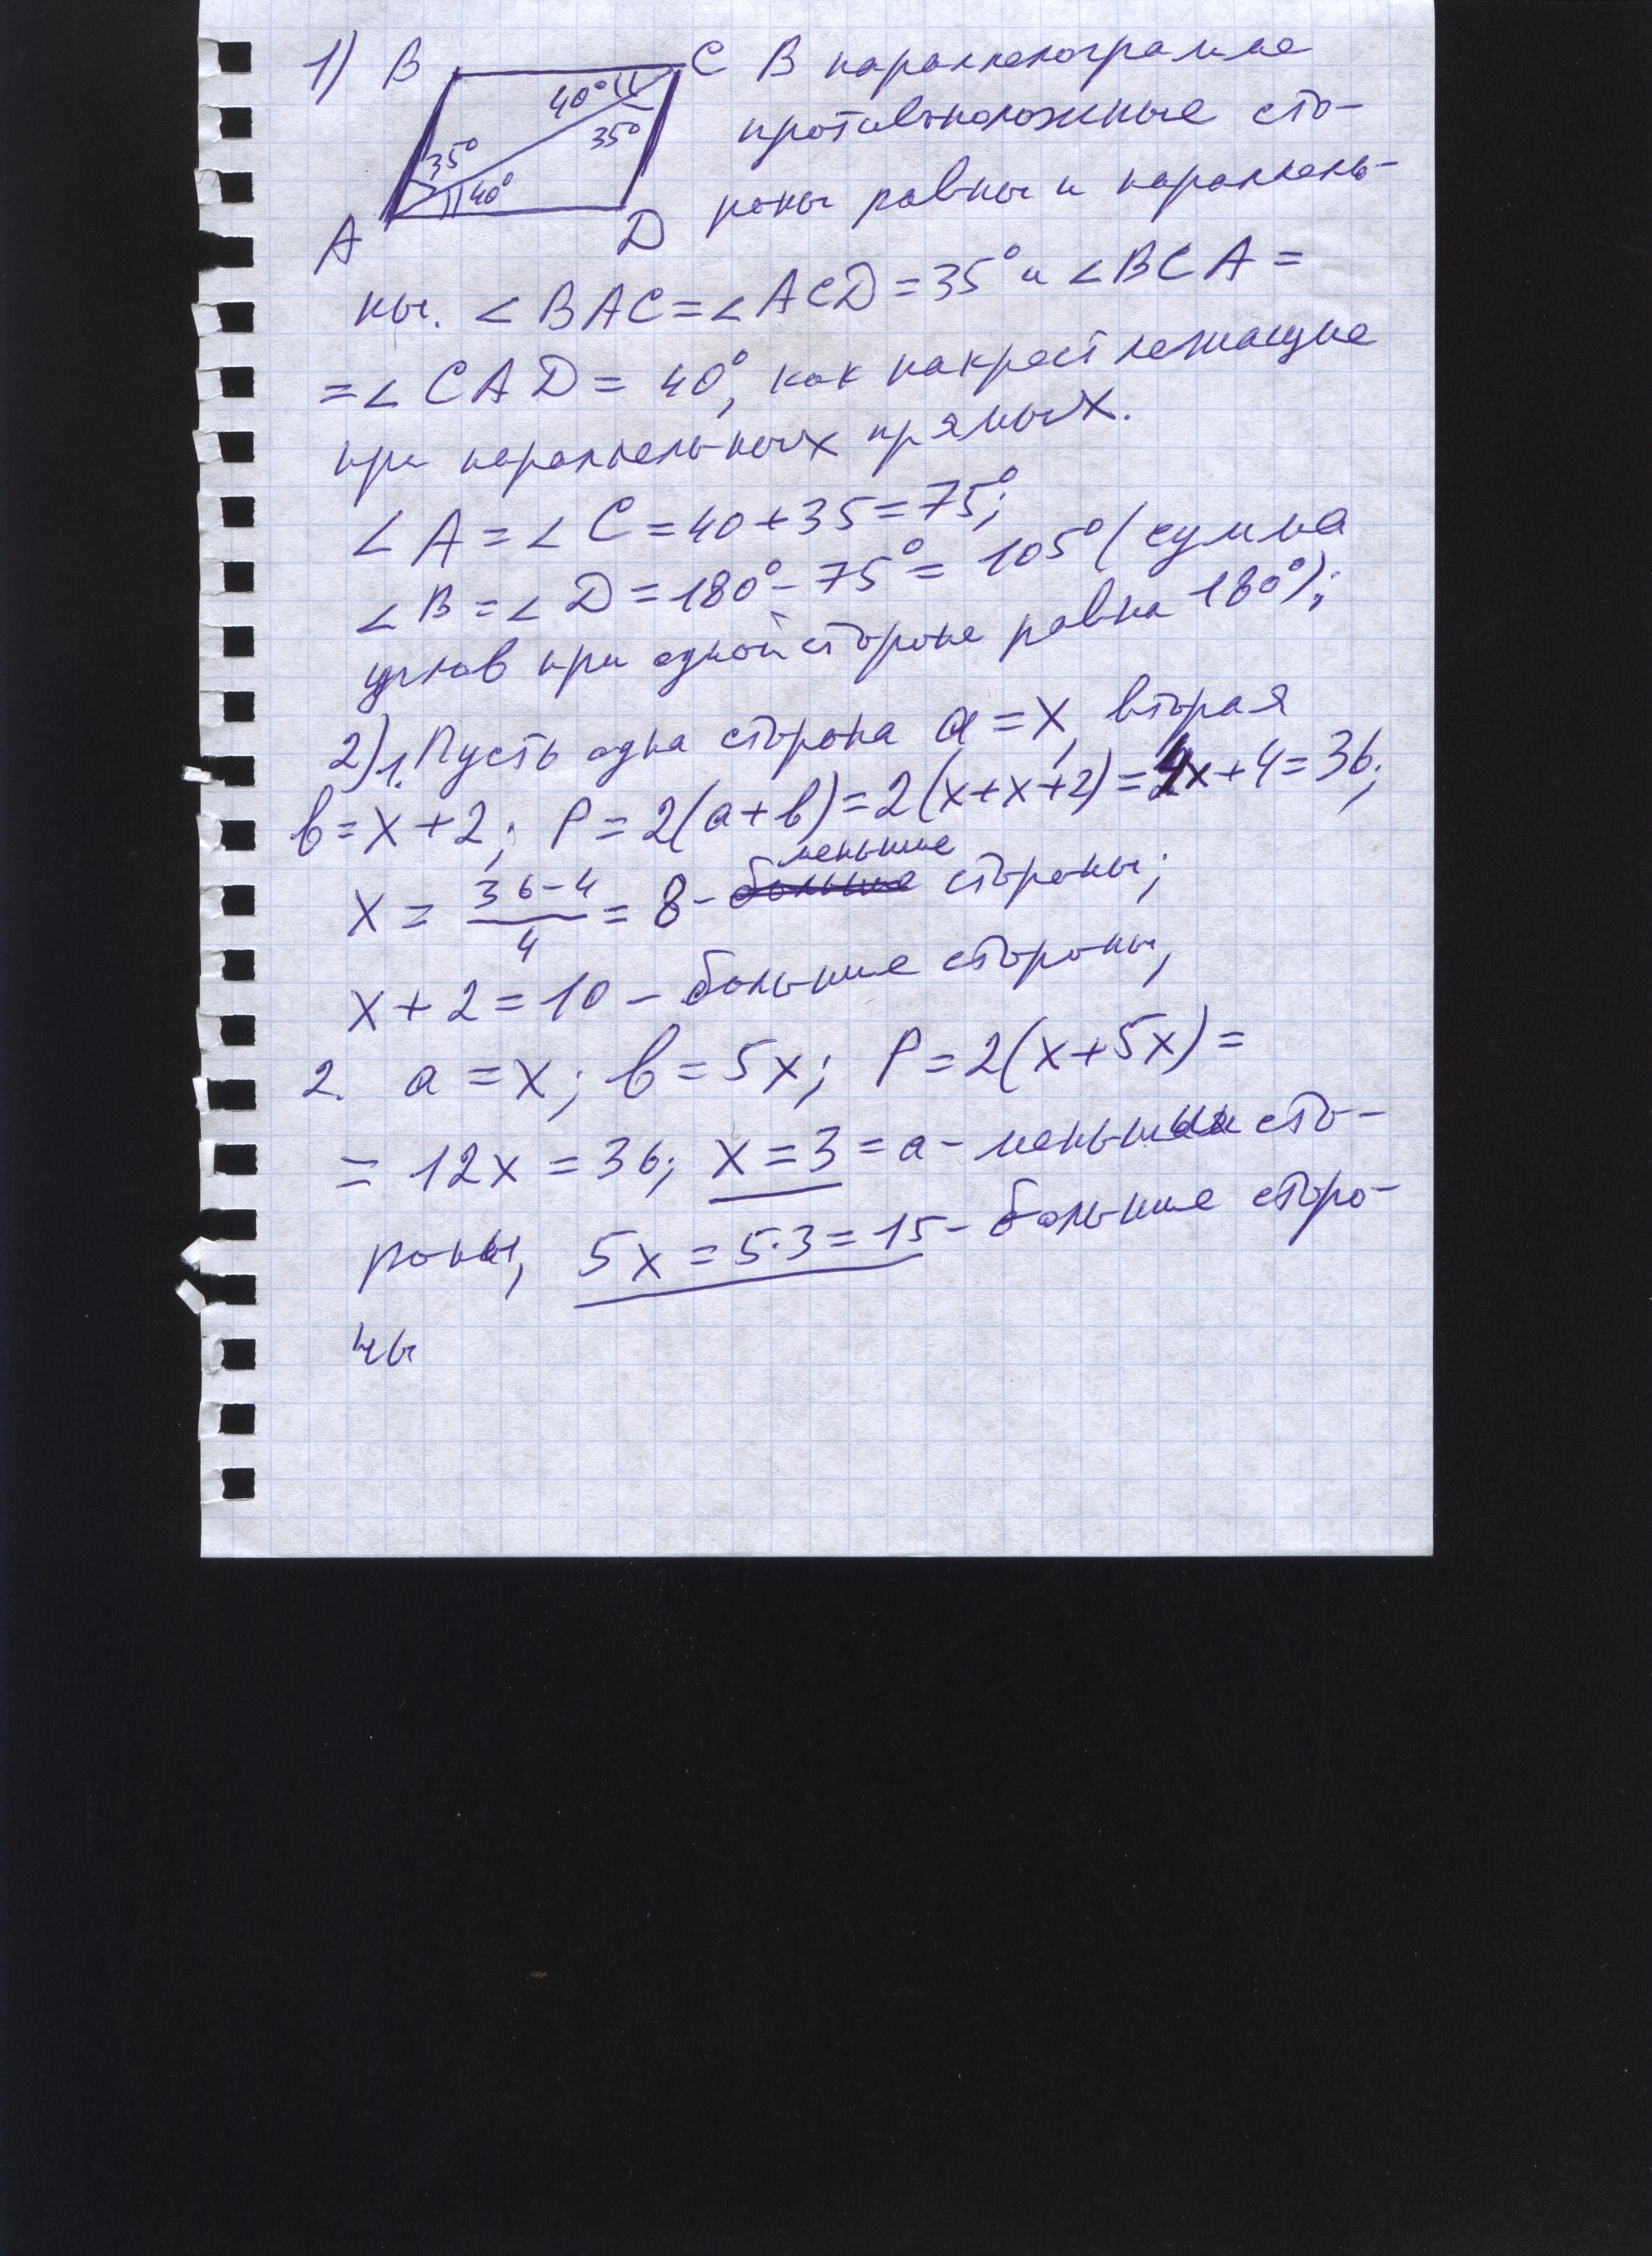 1) B C В параллелограмме
40° 35° противоположные сто-
35° 40°
A D роны равны и параллель-
ны. ∠BAC=∠ACD=35° и ∠BCA=
=∠CAD=40°, как накрест лежащие
при параллельных прямых.
∠A=∠C=40+35=75°;
∠B=∠D=180°-75°=105° (сумма
углов при одной стороне равна 180°);
2) 1. Пусть одна сторона a=x, вторая
b=x+2; P=2(a+b)=2(x+x+2)=4x+4=36;
меньшие
x=\frac{36-4}{4}=8- большие стороны;
x+2=10- большие стороны,
2. a=x; b=5x; P=2(x+5x)=
=12x=36; x=3=a- меньшии сто-
роны, 5x=5·3=15- большие сторо-
ны